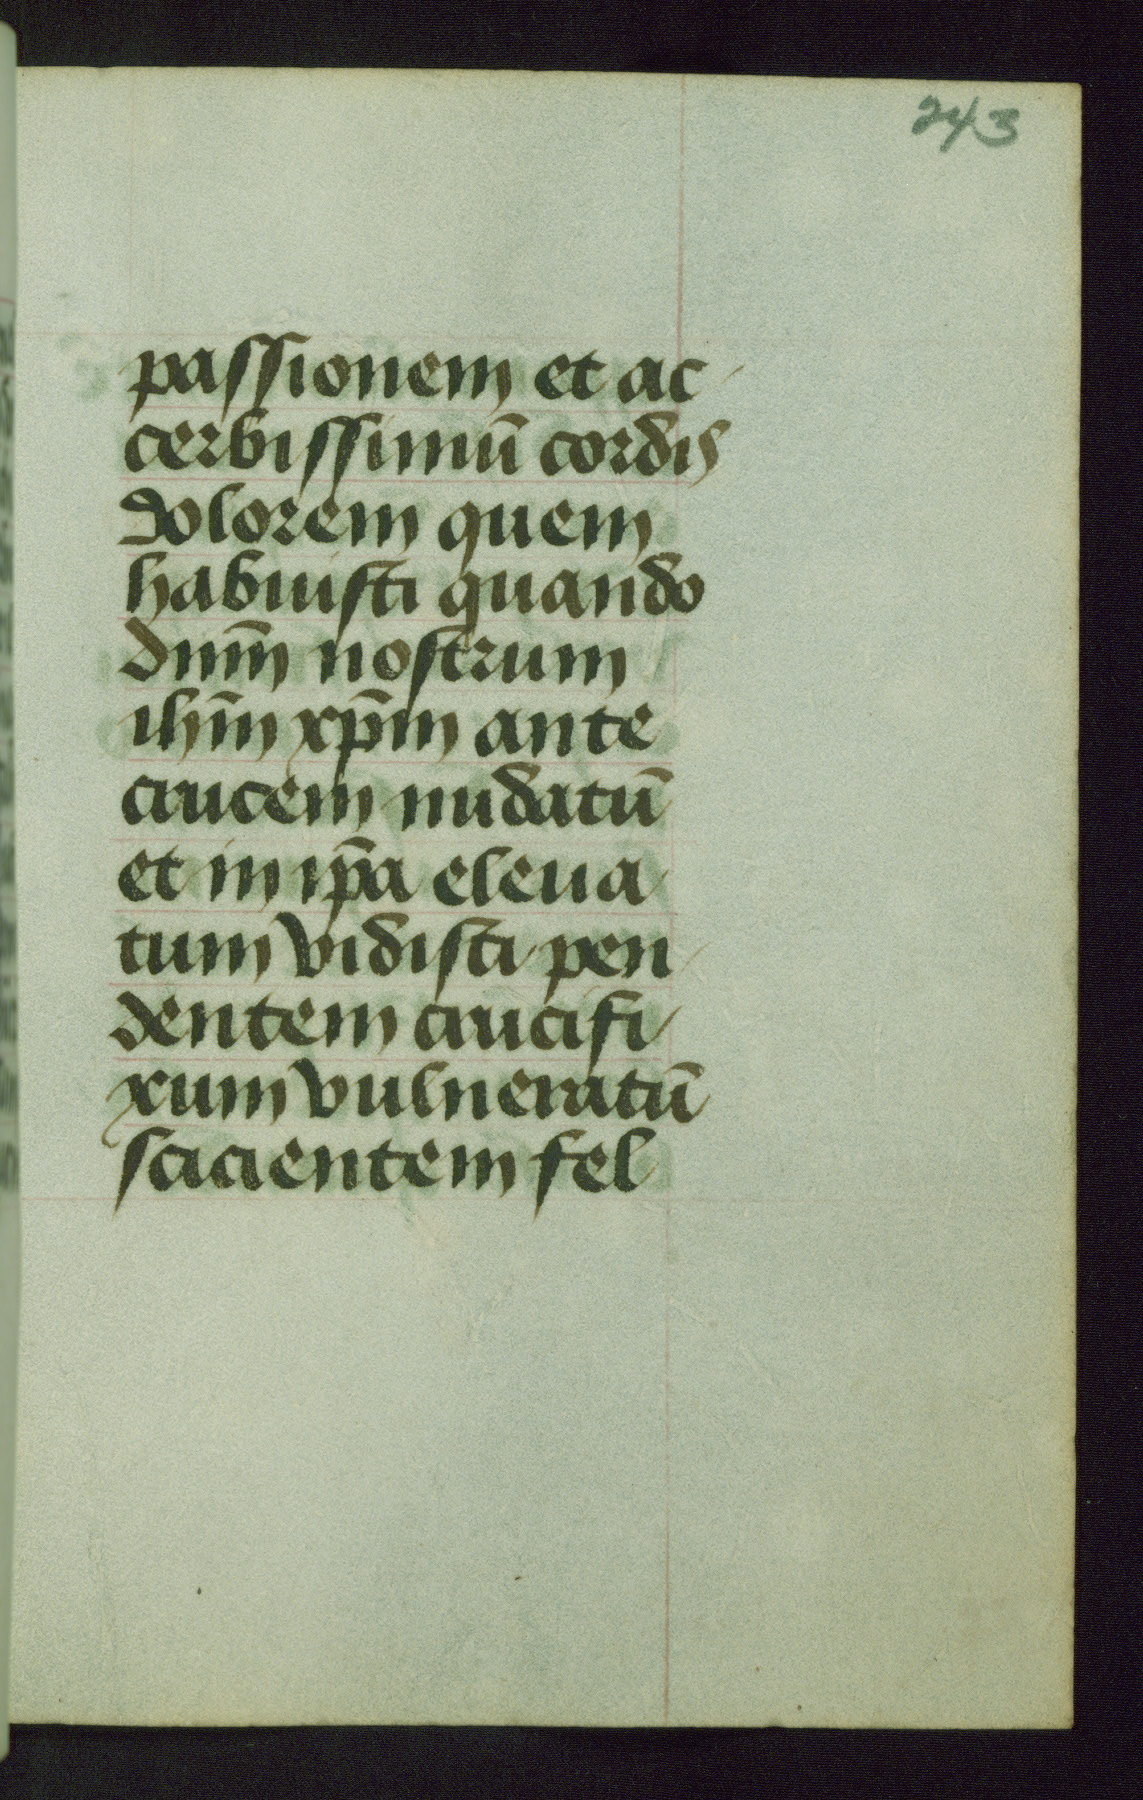 243
passionem et ac
cerbissimū cordis
dolorem quem
habuisti quando
dnm̄ nostrum
ihm̄ xp̄m ante
crucem nudatū
et in ip̄a eleua
tum vidisti pen
dentem crucifi
xum vulneratū
scicientem fel